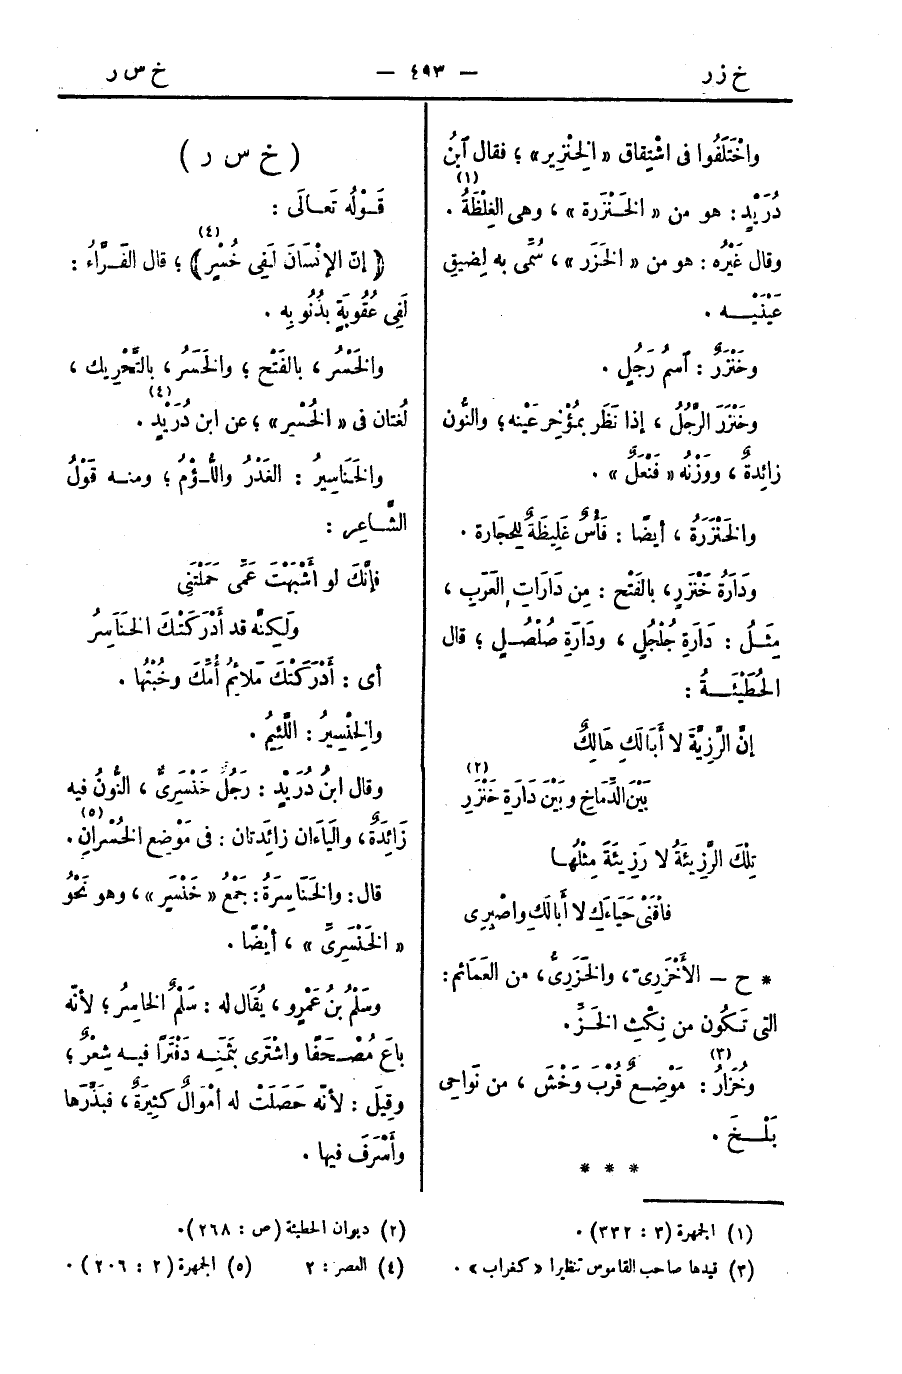 خ زر — ٤٩٣ — خ س ر
واخْتَلَفُوا فى اشْتِقاق « الخِنْزِير » ؛ فقال ٱبنُ
دُرَيْدٍ : هو من « الخَنْزَرة » ، وهى الغِلْظَةُ (١) .
وقال غَيْرُه : هو من « الخَزَر » ، سُمِّى به لِضيقِ
عَيْنَيْـــه .
وخَنْزَرٌ : ٱسمُ رَجُلٍ .
وخَنْزَرَ الرَّجُلُ ، إذا نَظَر بمُؤْخِرِ عَيْنه ؛ والنُّون
زائِدةٌ ، ووَزْنُه « فَنْعَلٌ » .
والخَنْزَرَةُ ، أيضًا : فَأْسٌ غَلِيظَةٌ للحِجَارة .
ودَارَةُ خَنْزَرٍ ، بالفَتْح : مِن دَارَاتِ العَرَبِ ،
مِثـلُ : دَارَةِ جُلْجُلٍ ، ودَارَةِ صُلْصُـلٍ ؛ قال
الحُطَيْئَـــةُ :
إنَّ الرَّزِيَّةَ لا أَبَالَكِ هَالِكٌ
بَيْنَ الدِّمَاخِ وبَيْنَ دَارَةِ خَنْزَرِ (٢)
تِلْكَ الرَّزِيئَةُ لا رَزِيئَةَ مِثْلُهـا
فاقْنَىْ حَيَاءَكِ لا أَبالَكِ واصْبِرِى
* ح — الأَخْزَرِىّ ، والخَزَرِىُّ ، من العَمَائم :
التى تَـكُون من نِكْثِ الخَـزِّ .
وخُزَارُ (٣) : مَوْضِـعٌ قُرْبَ وَخْشَ ، من نَواحِى
بَلْـــخَ .
* * *
(١) الجمهرة (٣ : ٣٣٢) .
(٣) قيدها صاحب القاموس تنظيرا « كغراب » .
( خ س ر )
قَـوْلُه تَعـالَى :
﴿ إنّ الإنْسَانَ لَفِى خُسْرٍ ﴾ (٤) ؛ قال الفَـرَّاءُ :
لَفِى عُقُوبَةٍ بذُنُوبِه .
والخَسْرُ ، بالفَتْح ؛ والخَسَرُ ، بالتَّحْرِيك ،
لُغتان فى « الخُسْر » ؛ عن ابن دُرَيْدٍ (٤) .
والخَنَاسِيرُ : الغَدْرُ واللُّـؤْمُ ؛ ومنـه قَوْلُ
الشَّـاعِر :
فإنَّكَ لو أَشْبَهْتَ عَمِّى حَمَلْتَنِى
ولَكِنَّه قد أَدْرَكَتْكَ الخَنَاسِرُ
أى : أَدْرَكَتْكَ مَلائِمُ أُمِّكَ وخُبْثُها .
والخِنْسِيرُ : اللَّئِيمُ .
وقال ابنُ دُرَيْدٍ : رَجُلٌ خَنْسَرِىٌّ ، النُّونُ فيه
زَائِدَةٌ ، والياَءان زائِدتان : فى مَوْضِع الخُسْرانِ (٥) .
قال : والخَنَاسِرَةُ : جَمْعُ « خَنْسَر » ، وهو نَحْوُ
« الخَنْسَرِىِّ » ، أَيْضًا .
وسَلْمُ بنُ عَمْرٍو ، يُقَال له : سَلْمٌ الخاسِرُ ؛ لأنّه
باعَ مُصْـحَفًا واشْتَرى بثَمَنِـه دَفْتَرًا فيـه شِعْرٌ ؛
وقِيلَ : لأنّه حَصَلَتْ له أَمْوَالٌ كَثِيرَةٌ ، فبَذَّرَها
وأَسْرَفَ فيها .
(٢) ديوان الحطيئة (ص : ٢٦٨) .
(٤) العصر : ٢ (٥) الجمهرة (٢ : ٢٠٦) .